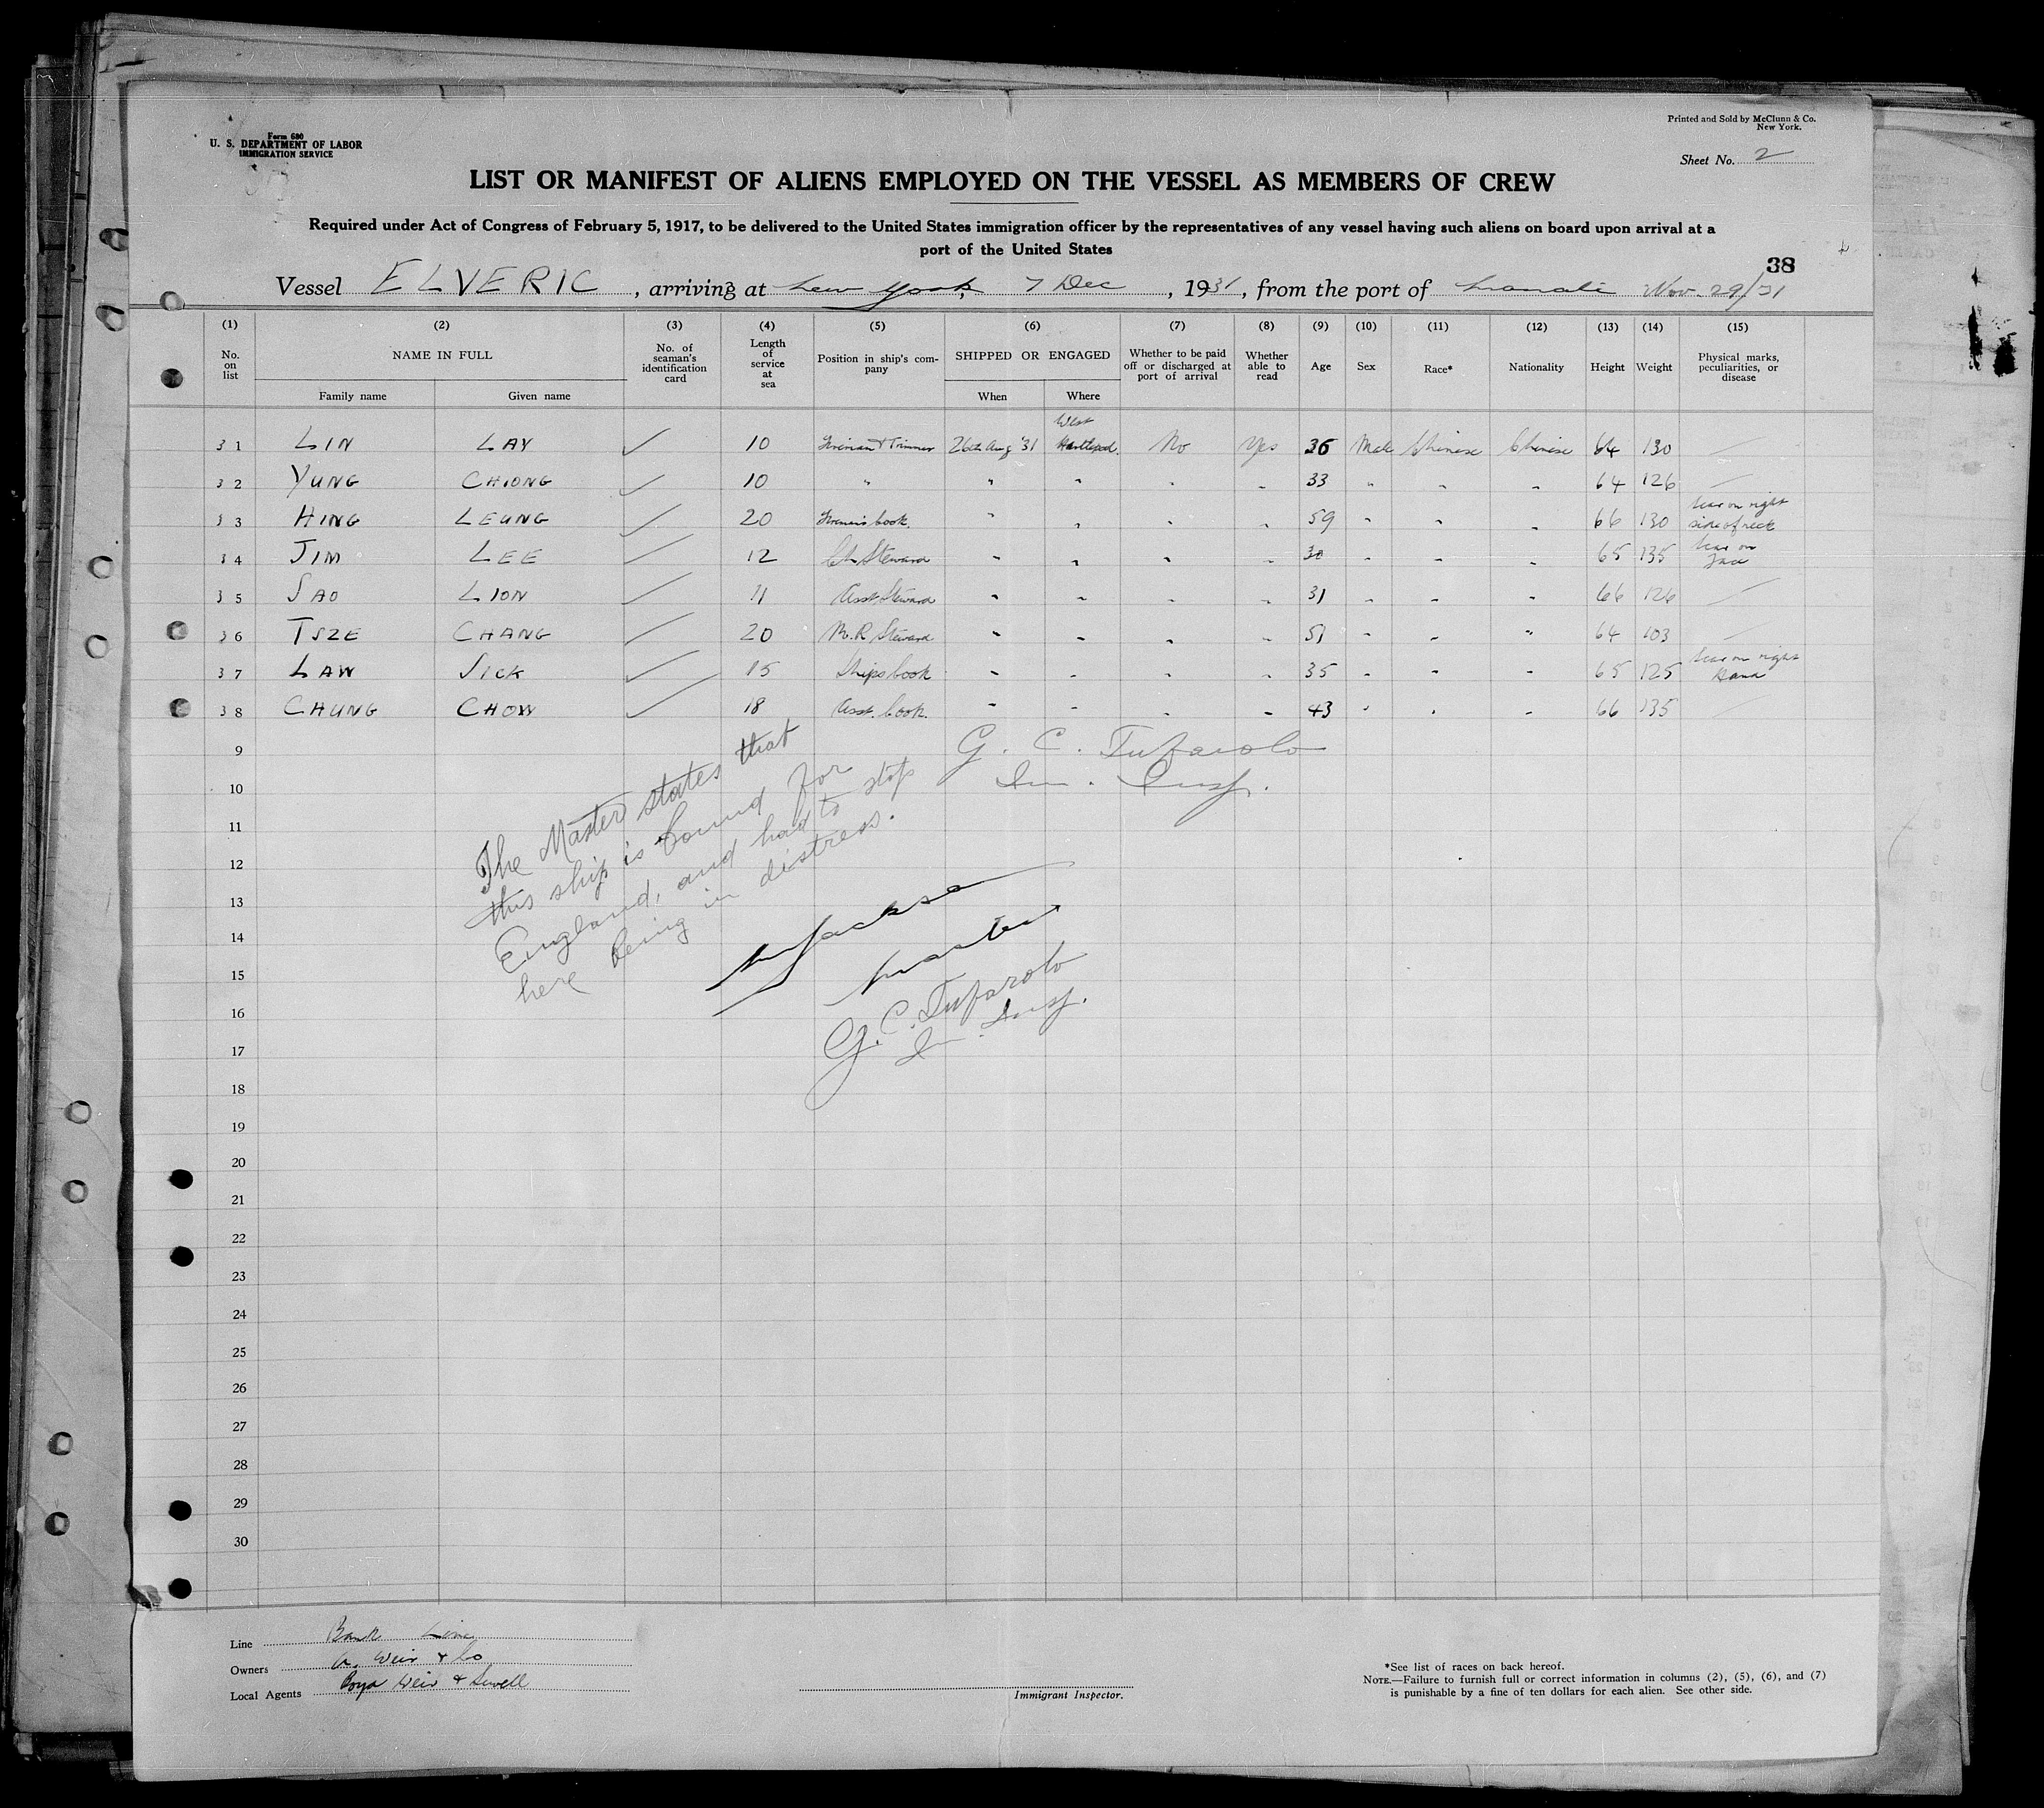 Form 680
U. S. DEPARTMENT OF LABOR
IMMIGRATION SERVICE
Printed and Sold by McClunn & Co.
New York.
Sheet No. 2
LIST OR MANIFEST OF ALIENS EMPLOYED ON THE VESSEL AS MEMBERS OF CREW
Required under Act of Congress of February 5, 1917, to be delivered to the United States immigration officer by the representatives of any vessel having such aliens on board upon arrival at a
port of the United States
38
Vessel ELVERIC, arriving at New York, 7 Dec, 1931, from the port of Nov. 29/31
(1) (2) (3) (4) (5) (6) (7) (8) (9) (10) (11) (12) (13) (14) (15)
No. on list NAME IN FULL No. of seaman's identification card Length of service at sea Position in ship's company SHIPPED OR ENGAGED Whether to be paid off or discharged at port of arrival Whether able to read Age Sex Race* Nationality Height Weight Physical marks, peculiarities, or disease
Family name Given name When Where
31 LIN LAY ✓ 10 Fireman & Trimmer 26th Aug '31 West Hartlepool. No Yes 36 Male Chinese Chinese 64 130 —
32 YUNG CHIONG ✓ 10 " " " " " 33 " " " 64 126 —
33 HING LEUNG ✓ 20 Firemen's Cook. " " " " 59 " " " 66 130 Scar on right side of neck
34 JIM LEE ✓ 12 Ch. Steward " " " " 30 " " " 65 135 Scar on face
35 SAO LION ✓ 11 Asst. Steward " " " " 31 " " " 66 126 —
36 TSZE CHANG ✓ 20 M. R Steward " " " " 51 " " " 64 103 —
37 LAW SICK ✓ 15 Ships Cook " " " " 35 " " " 65 125 Scar on right Hand
38 CHUNG CHOW ✓ 18 Asst. Cook. " " " " 43 " " " 66 135 —
9
10
11
12
13
14
15
16
17
18
19
20
21
22
23
24
25
26
27
28
29
30
G. C. Tufarolo
Im. Insp.
The Master states that
this ship is bound for
England, and had to stop
here being in distress.
Master
G. C. Tufarolo
Im. Insp.
Line Bank Line
Owners A. Weir & Co
Local Agents Boyd Weir & Sewell
Immigrant Inspector.
*See list of races on back hereof.
NOTE.—Failure to furnish full or correct information in columns (2), (5), (6), and (7)
is punishable by a fine of ten dollars for each alien. See other side.